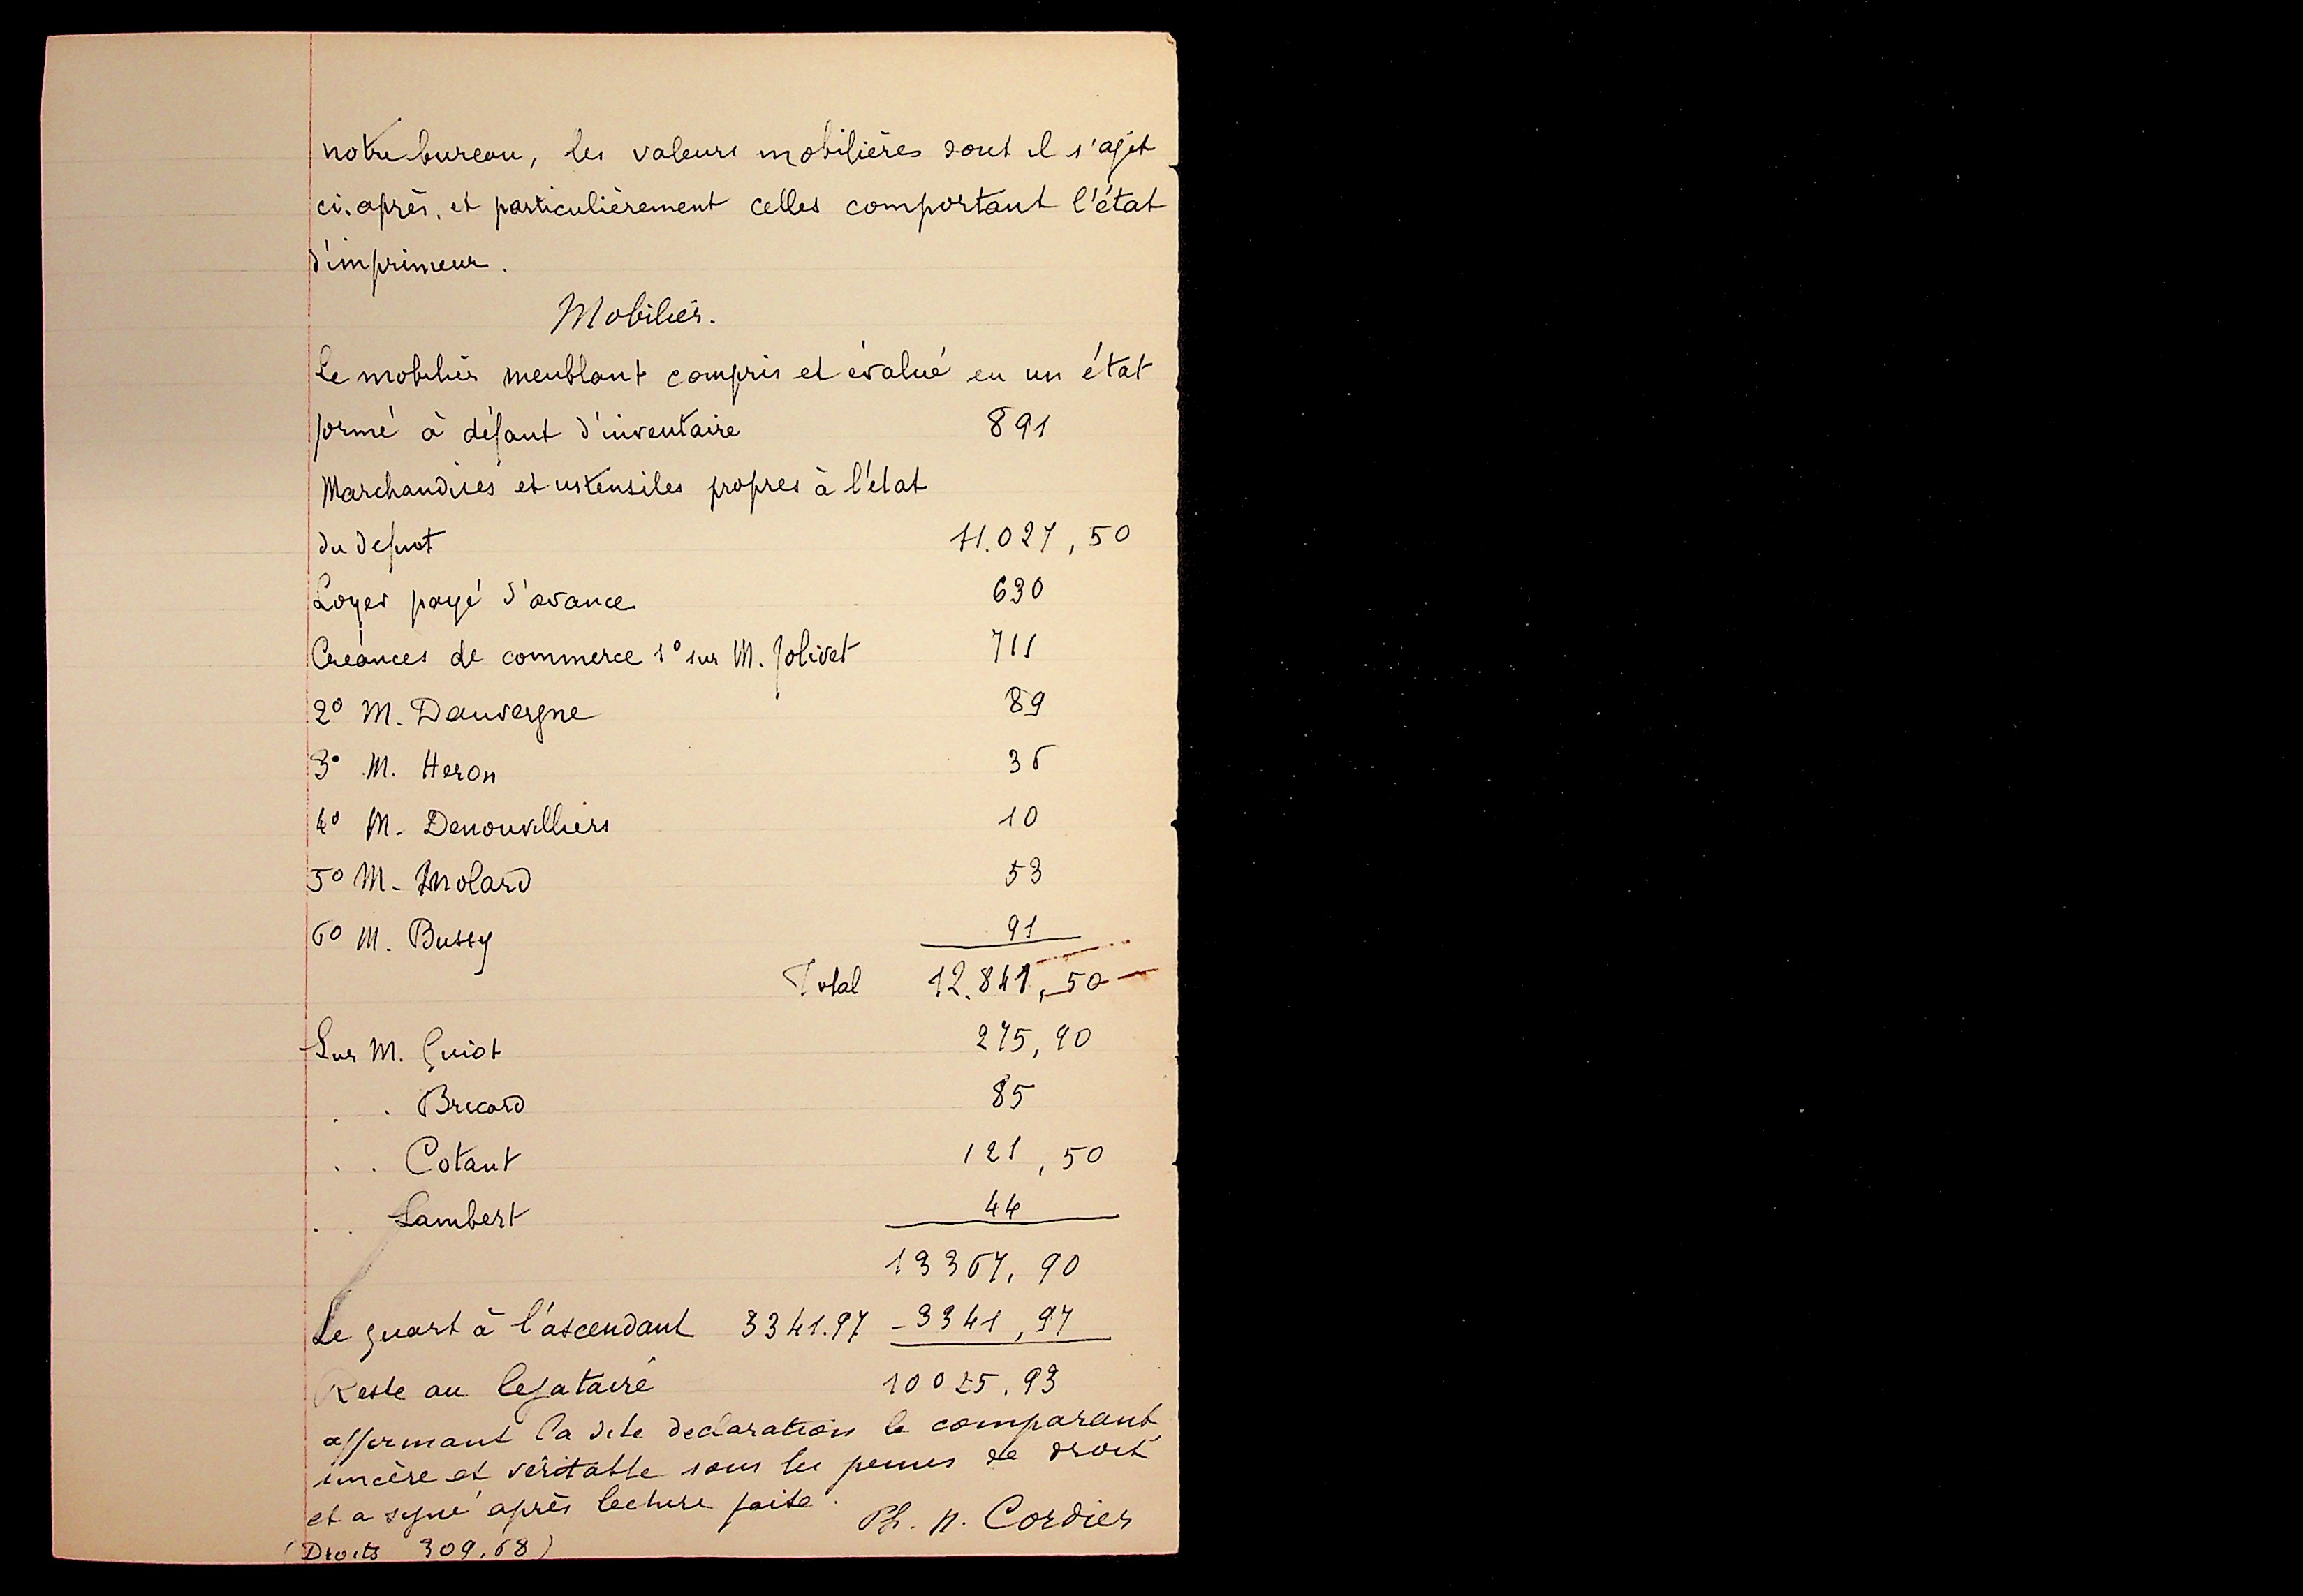 notre bureau, les valeurs mobilières dont il s'agit
ci. après, et particulièrement celles comportant l'état
d'imprimeur.
Mobilier.
Le mobilier meublant compris et évalué en un état
formé à défaut d'inventaire 891
Marchandises et ustensiles propres à l'état
du defunt 11.027,50
Loyer payé d'avance 630
Créances de commerce 1° sur M. Jolivet 711
2° M. Dauvergne 89
3° M. Heron 36
4° M. Denouvilliers 10
5° M. Molard 53
6° M. Bussy 91
Total 12.841,50
Sur M. Guiot 275,90
. . Bricard 85
. . Cotant 121,50
. . Lambert 44
13367,90
Le quart à l'ascendant 3341.97 - 3341,97
Reste au legataire 10025.93
affirmant la dite declaration le comparant,
sincère et véritable sous les peines de droit
et a signé après lecture faite. Ph. n. Cordier
(Droits 309.68)